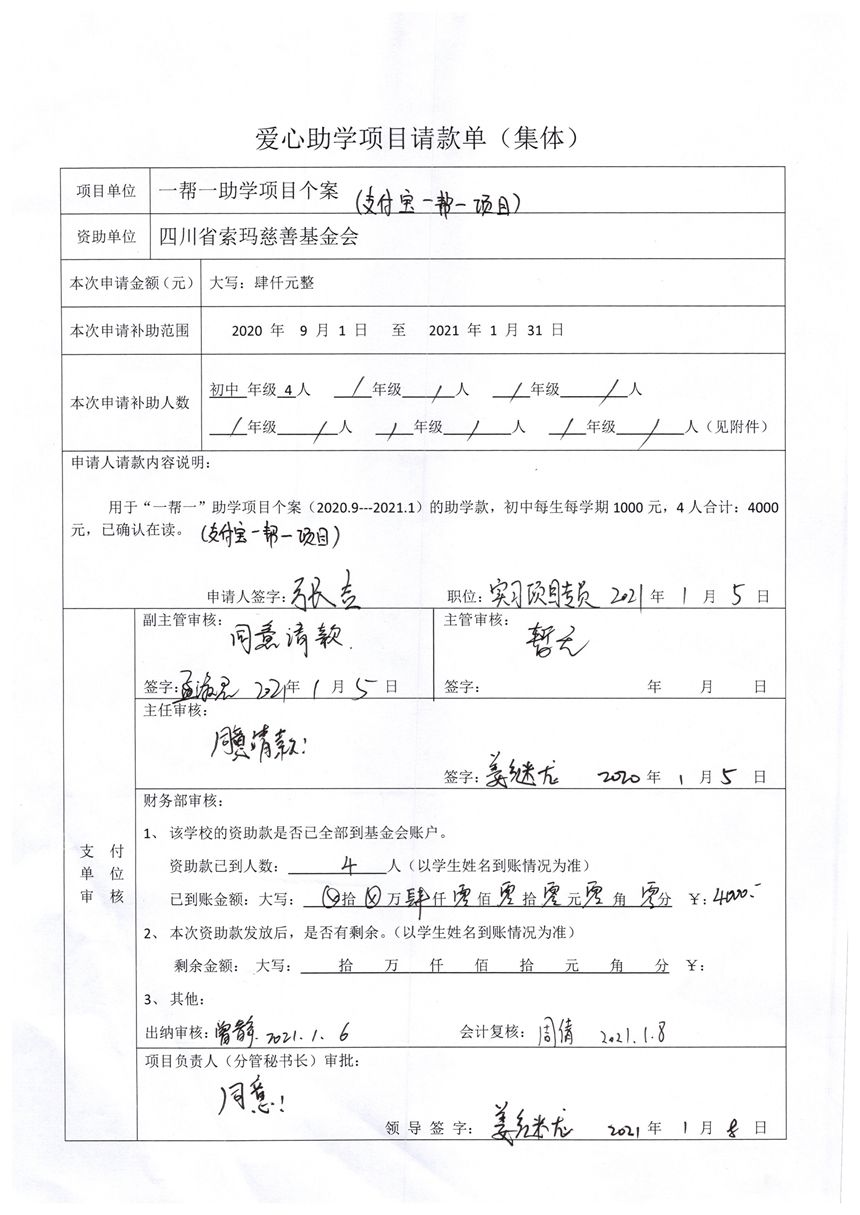 爱心助学项目请款单（集体）
项目单位 一帮一助学项目个案 (支付宝一帮一项目)
资助单位 四川省索玛慈善基金会
本次申请金额（元） 大写：肆仟元整
本次申请补助范围 2020 年 9 月 1 日 至 2021 年 1 月 31 日
本次申请补助人数
初中 年级 4 人 / 年级 / 人 / 年级 / 人
/ 年级 / 人 / 年级 / 人 / 年级 / 人（见附件）
申请人请款内容说明：
用于“一帮一”助学项目个案（2020.9---2021.1）的助学款，初中每生每学期 1000 元，4 人合计：4000
元，已确认在读。 (支付宝一帮一项目)
申请人签字: 张吉 职位: 实习项目专员 2021 年 1 月 5 日
副主管审核： 同意请款. 主管审核： 暂无
签字: 2021 年 1 月 5 日 签字: 年 月 日
主任审核：
同意请款!
签字: 姜继龙 2020 年 1 月 5 日
支 付
单 位
审 核
财务部审核：
1、 该学校的资助款是否已全部到基金会账户。
资助款已到人数： 4 人（以学生姓名到账情况为准）
已到账金额：大写： ⊗ 拾 ⊗ 万 肆 仟 零 佰 零 拾 零 元 零 角 零 分 ￥: 4000.-
2、 本次资助款发放后，是否有剩余。（以学生姓名到账情况为准）
剩余金额： 大写： 拾 万 仟 佰 拾 元 角 分 ￥:
3、 其他：
出纳审核: 曾静 2021.1.6 会计复核: 周倩 2021.1.8
项目负责人（分管秘书长）审批：
同意!
领 导 签 字: 姜继龙 2021 年 1 月 8 日